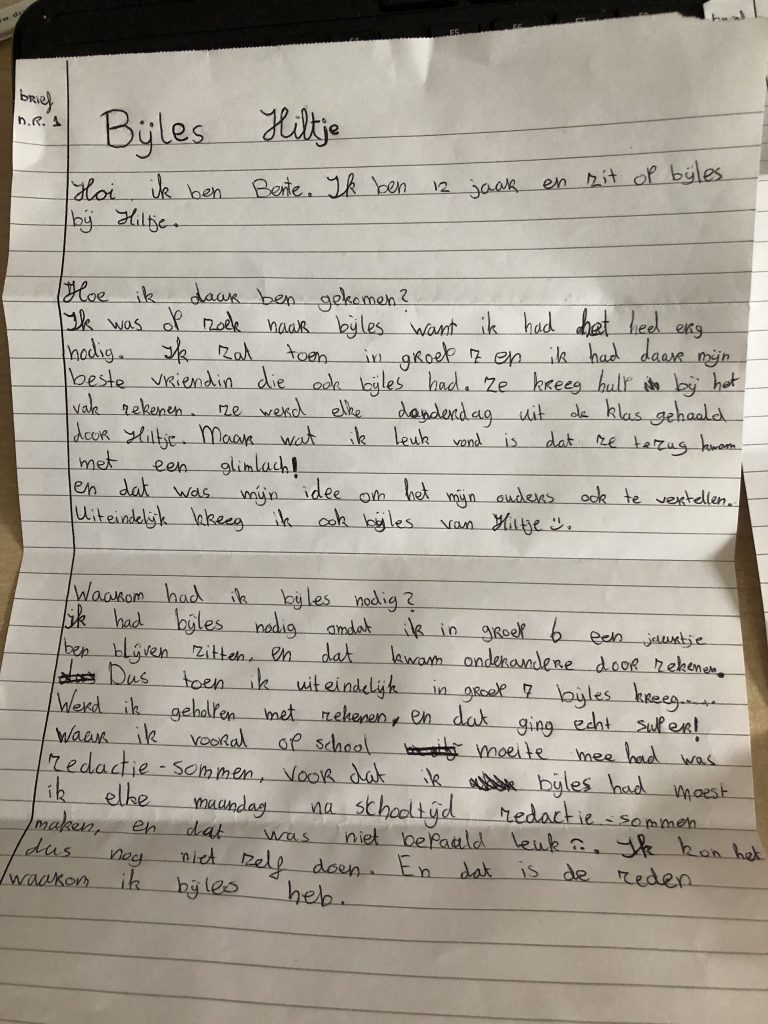 brief
n.R. 1
Bijles Hiltje
Hoi, ik ben Bente. Ik ben 12 jaar en zit op bijles
bij Hiltje.
Hoe ik daar ben gekomen?
Ik was op zoek naar bijles want ik had het heel erg
nodig. Ik zat toen in groep 7 en ik had daar mijn
beste vriendin die ook bijles had. Ze kreeg hulp bij het
vak rekenen. ze werd elke donderdag uit de klas gehaald
door Hiltje. Maar wat ik leuk vond is dat ze terug kwam
met een glimlach!
en dat was mijn idee om het mijn ouders ook te vertellen.
Uiteindelijk kreeg ik ook bijles van Hiltje :).
Waarom had ik bijles nodig?
ik had bijles nodig omdat ik in groep 6 een jaartje
ben blijven zitten, en dat kwam onderandere door rekenen.
Dus toen ik uiteindelijk in groep 7 bijles kreeg......
Werd ik geholpen met rekenen, en dat ging echt super!
waar ik vooral op school moeite mee had was
redactie-sommen, voor dat ik bijles had moest
ik elke maandag na schooltijd redactie-sommen
maken, en dat was niet bepaald leuk :(. Ik kon het
dus nog niet zelf doen. En dat is de reden
waarom ik bijles heb.